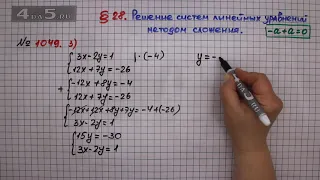 4 на 5. ru
§ 28. Решение систем линейных уравнений методом сложения.
-a+a=0
№ 1049. 3)
3x-2y=1 | ·(-4)
12x+7y=-26
+
-12x+8y=-4
12x+7y=-26
-12x+12x+8y+7y=-4+(-26)
3x-2y=1
15y=-30
3x-2y=1
y=-